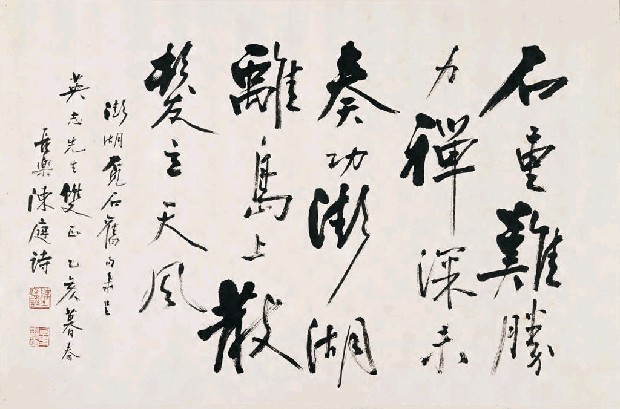 石重難勝
力禪深未
奏功澎湖
離島上散
髮立天風
澎湖覓石舊句呈
英志先生雙正 乙亥暮春
長樂陳庭詩